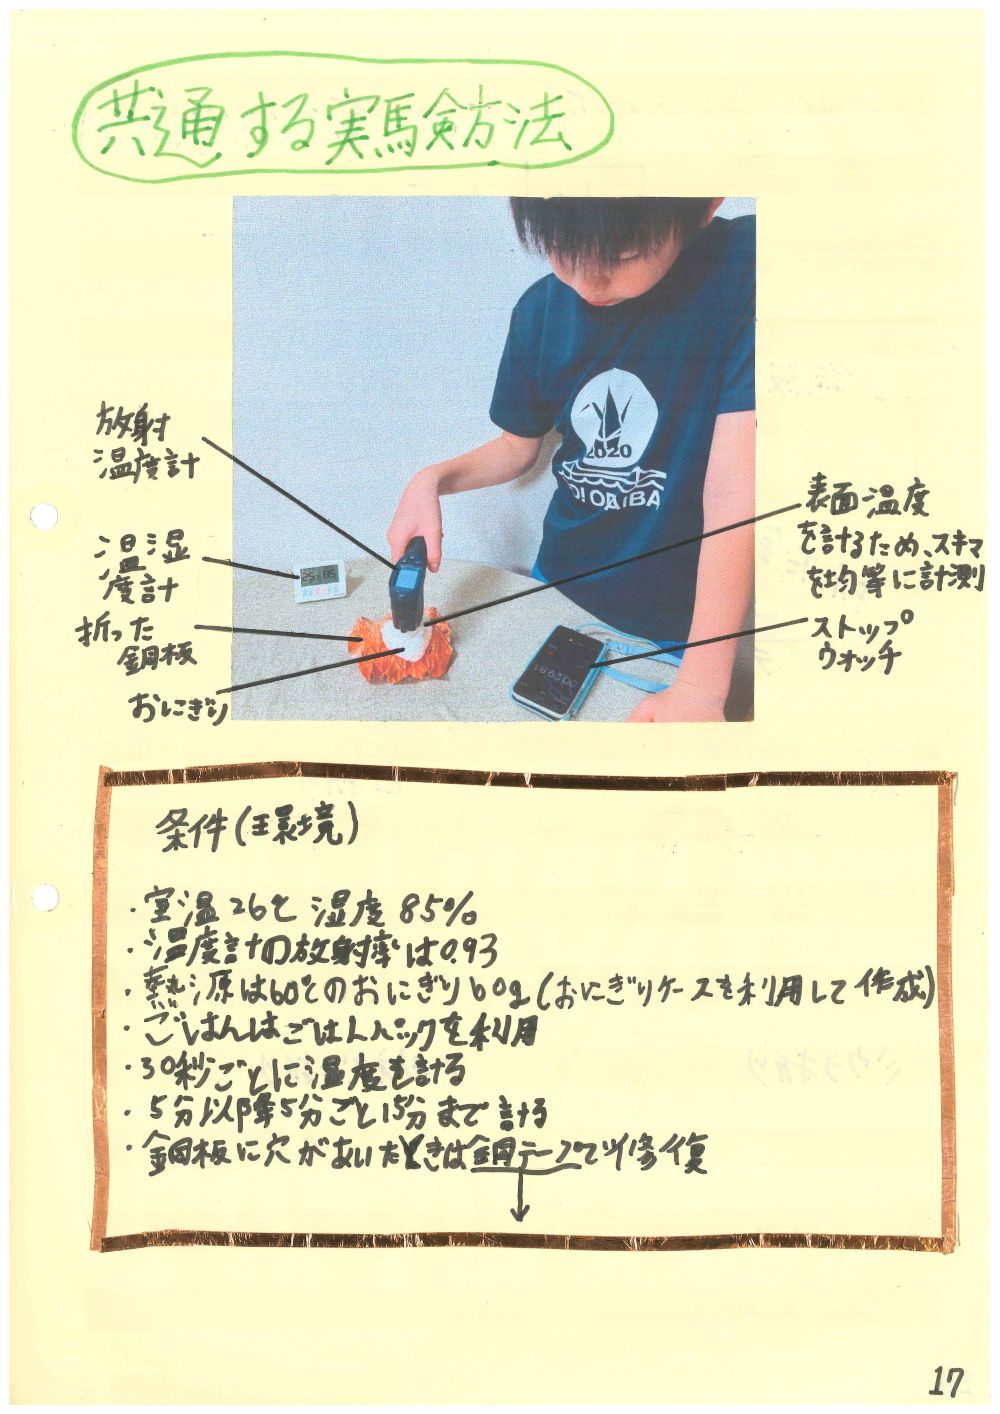 共通する実験方法
放射
温度計
温湿
度計
折った
銅板
おにぎり
2020
表面温度
を計るため、スキマ
を均等に計測
ストップ
ウォッチ
条件(環境)
・室温26℃ 湿度85%
・温度計の放射率は0.93
・熱源は60℃のおにぎり60g(おにぎりケースを利用して作成)
・ごはんはごはんパックを利用
・30秒ごとに温度を計る
・5分以降5分ごと15分まで計る
・銅板に穴があいたときは銅テープで修復
17